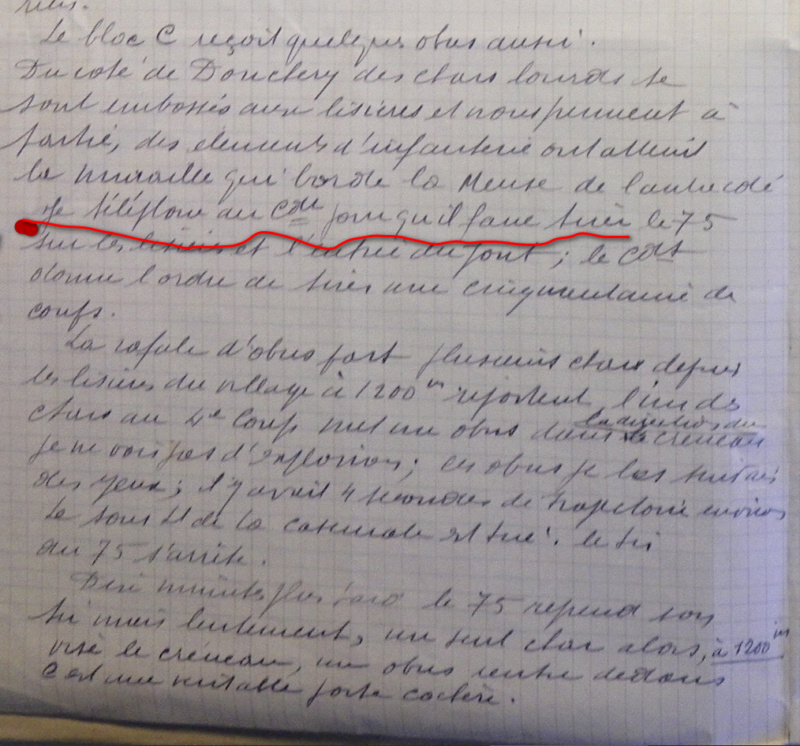 Le bloc C reçoit quelques obus aussi.
Du coté de Donchery des chars lourds se
sont embossés aux lisières et nous prennent à
partie, des elements d'infanterie ont atteint
la muraille qui borde la Meuse de l'autre coté
Je téléphone au Cdt pour qu'il fasse tirer le 75
sur les lisières et l'entrée du pont ; le Cdt
donne l'ordre de tirer une cinquantaine de
coups.
La rafale d'obus part plusieurs chars depuis
les lisières du village à 1200 m ripostent l'un des
chars au 4e coup met un obus dans la direction du créneau
je ne vois pas d'explosion ; ces obus je les suivais
des yeux ; il y avait 4 secondes de trajectoire environ
Le sous Lt de la casemate est tué. le tir
du 75 s'arrête.
Dix minutes plus tard le 75 reprend son
tir mais lentement, un seul char alors, à 1200 m
vise le créneau, un obus rentre dedans
C'est une véritable porte cochère.